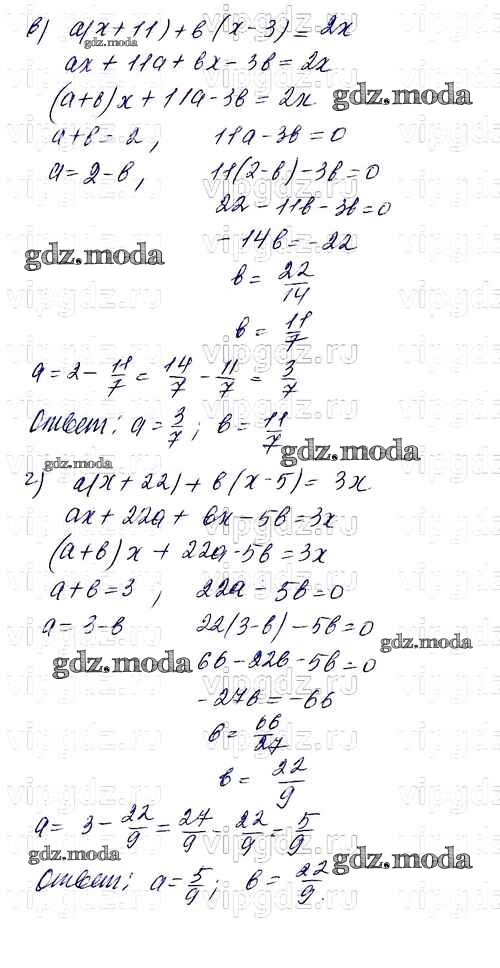 в) a(x+11)+в(x-3)=2x
ax+11a+вx-3в=2x
(a+в)x+11a-3в=2x
gdz.moda
a+в=2, 11a-3в=0
a=2-в, 11(2-в)-3в=0
22-11в-3в=0
gdz.moda
-14в=-22
в= 22/14
в= 11/7
a=2- 11/7 = 14/7 - 11/7 = 3/7
Ответ: a= 3/7; в= 11/7
gdz.moda
gdz.moda
г) a(x+22)+в(x-5)=3x
ax+22a+вx-5в=3x
(a+в)x+22a-5в=3x
a+в=3, 22a-5в=0
a=3-в 22(3-в)-5в=0
gdz.moda
gdz.moda
66-22в-5в=0
-27в=-66
в= 66/27
в= 22/9
a= 3- 22/9 = 27/9 - 22/9 = 5/9
gdz.moda
gdz.moda
Ответ: a= 5/9; в= 22/9.
vipgdz.ru